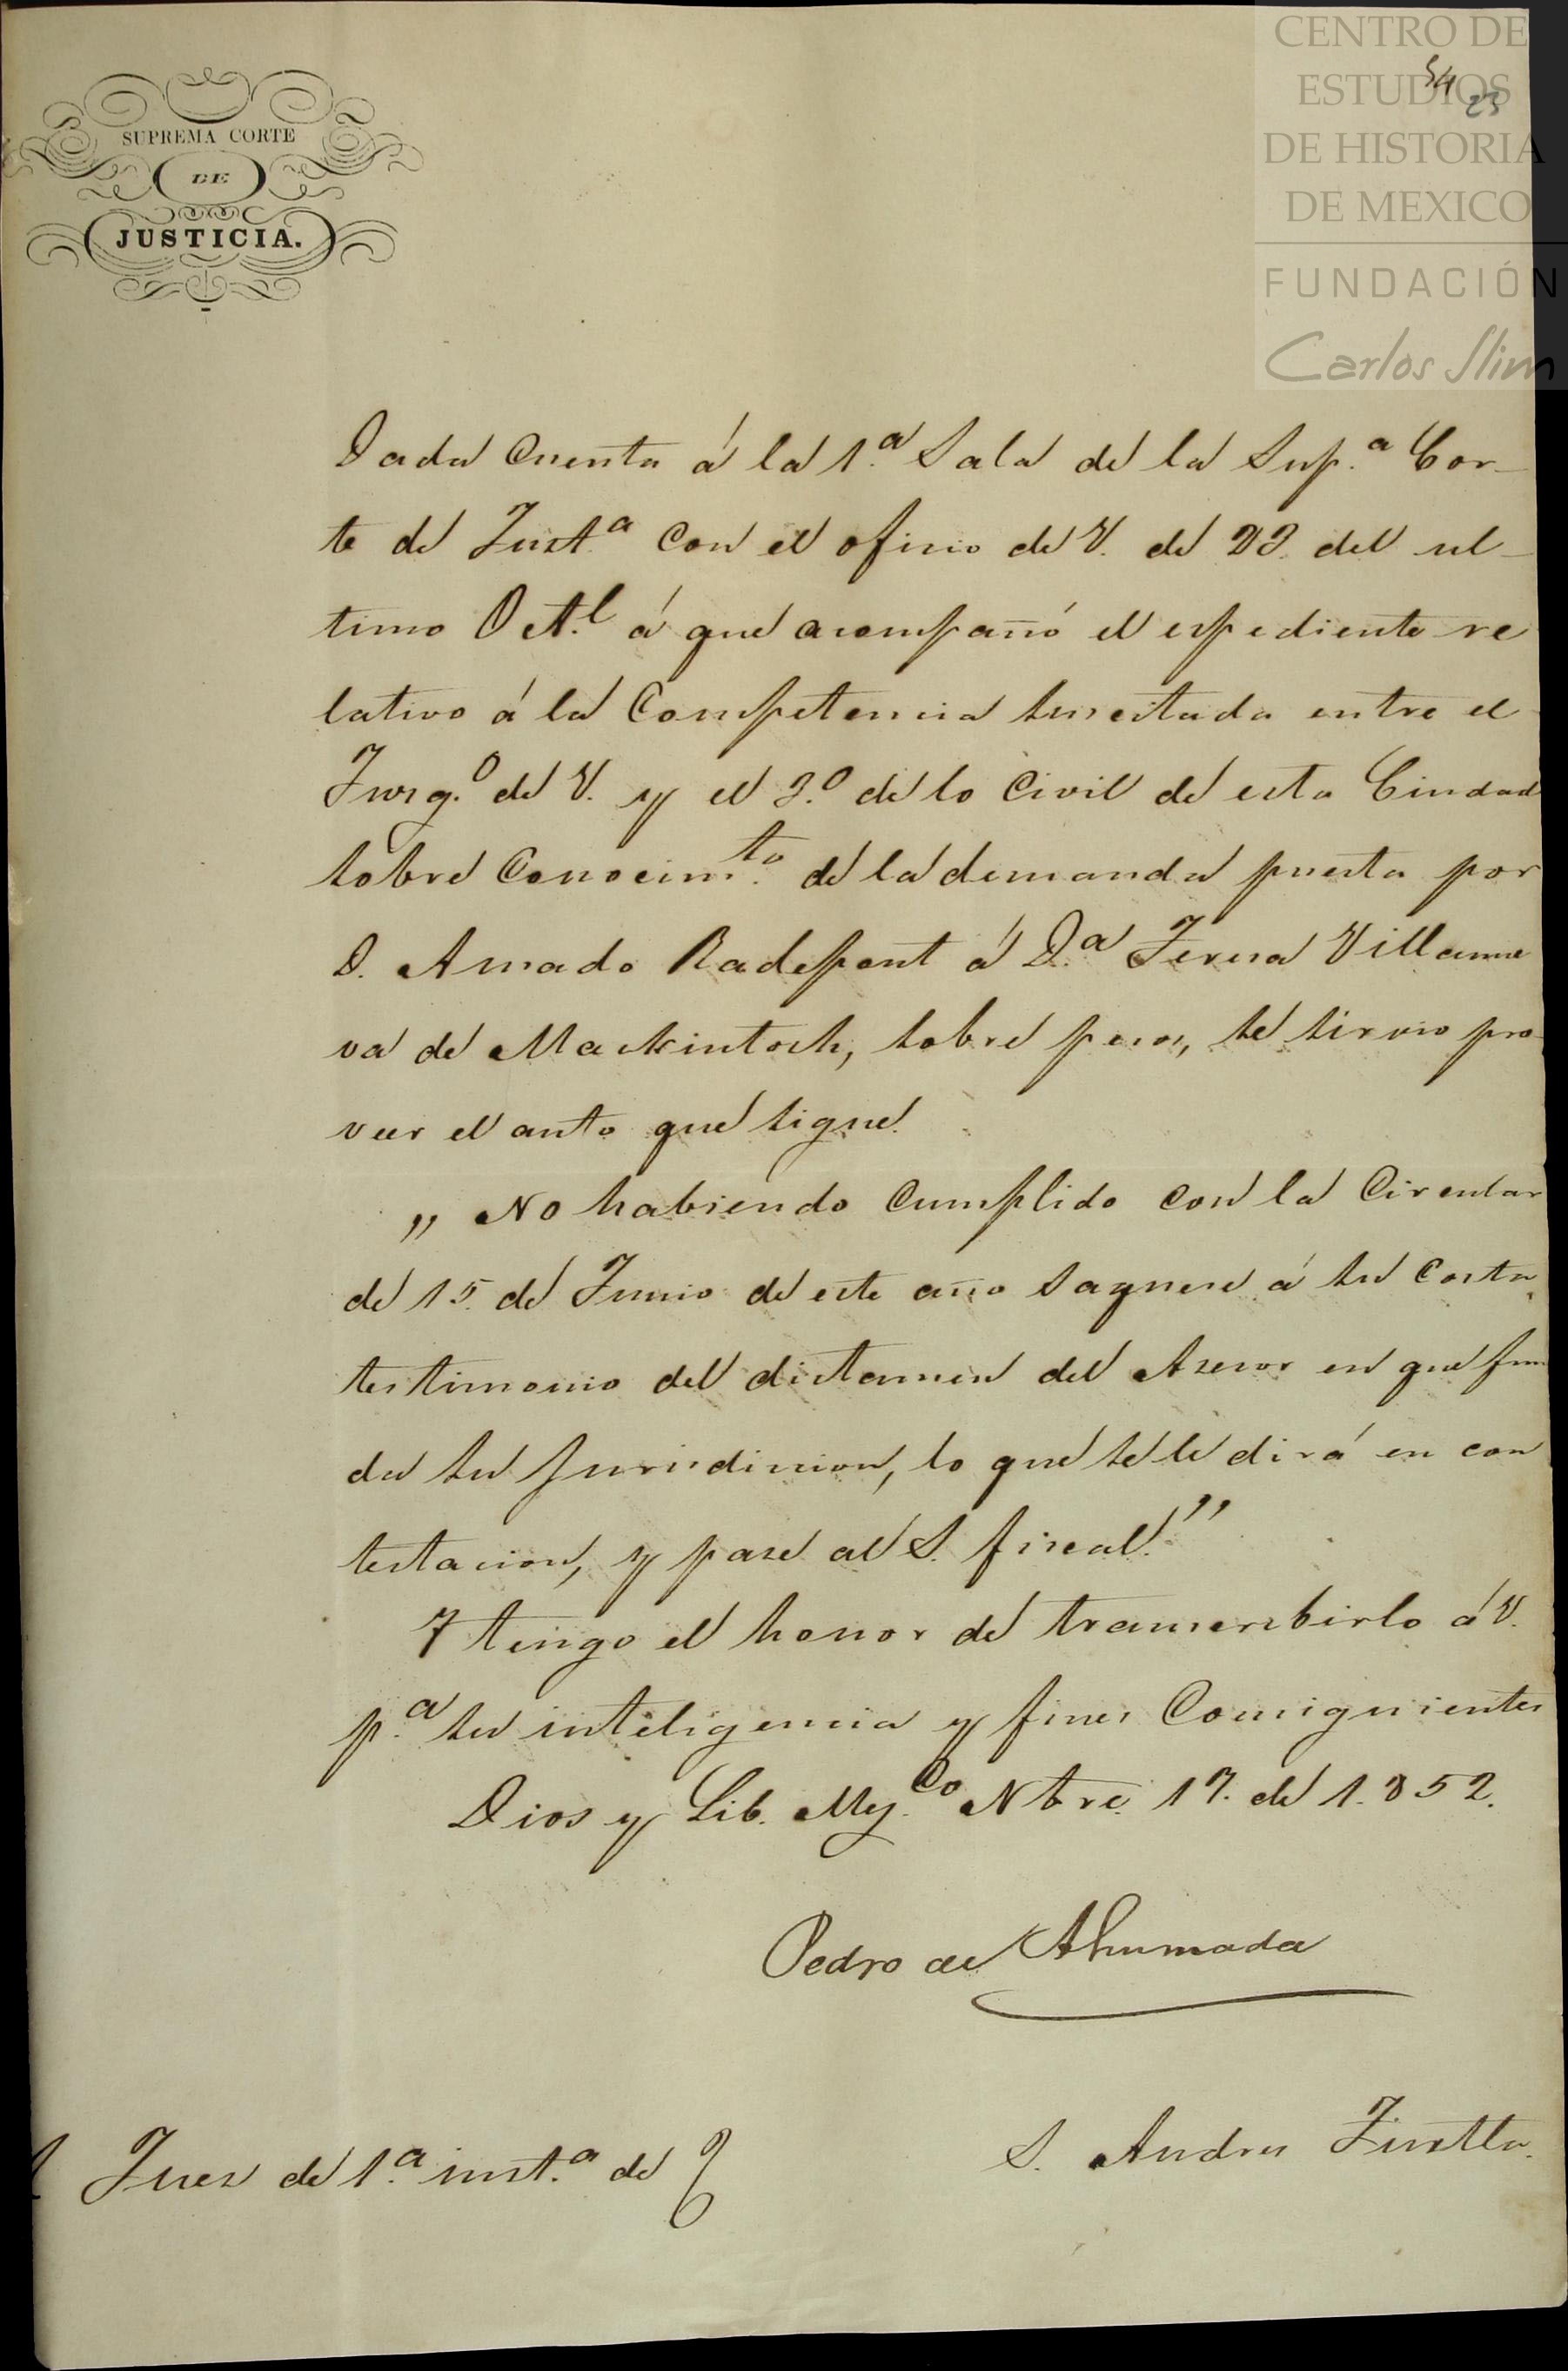 CENTRO DE
ESTUDIOS
DE HISTORIA
DE MEXICO
FUNDACIÓN
Carlos Slim
54
23
SUPREMA CORTE
DE
JUSTICIA.
Dada Cuenta á la 1.ª Sala de la Sup.ª Cor-
te de Just.ª con el oficio de V. de 23. del ul-
timo Oct.l á que acompañó el espediente re
lativo á la Competencia suscitada entre el
Juzg.º de V. y el 3.º de lo Civil de esta Ciudad
sobre Conocim.to de la demanda puesta por
D. Amado Radepont á D.ª Teresa Villanue
va de Mackintosh, sobre pesos, se sirvio pro
veer el auto que sigue.
„ No habiendo Cumplido con la Circular
de 15. de Junio de este año saquese á su Costa
testimonio del dictamen del Asesor en que fun
da su Jurisdiccion, lo que se le dirá en con
testacion, y pase al S. fiscal."
Y tengo el honor de transcribirlo á V.
p.ª su inteligencia y fines Consiguientes
Dios y Lib. Mej.co Nbre. 17. de 1.852.
Pedro de Ahumada
Juez de 1.ª inst.ª de
S. Andres Tuxtla.